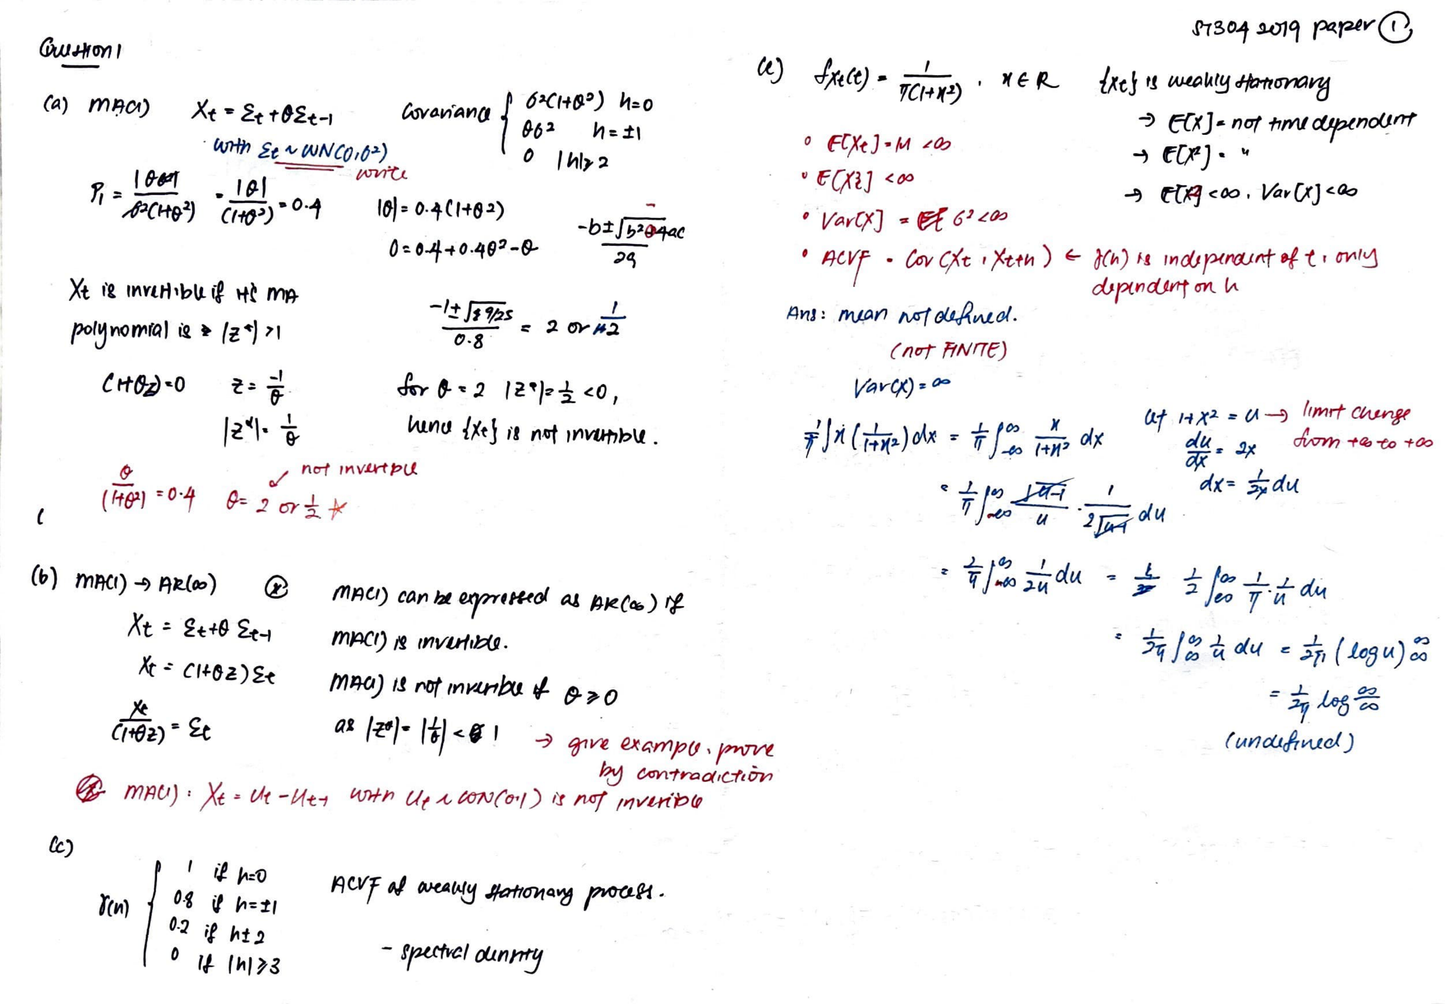 ST304 2019 paper ①
Question 1
(a) MA(1) Xt = Ɛt + θƐt-1
with Ɛt ~ WN(0,σ²)
write
Covariance { σ²(1+θ²) h=0
θσ² h=±1
0 |h|≥2
ρ1 = |θσ²| / σ²(1+θ²) = |θ| / (1+θ²) = 0.4
|θ| = 0.4(1+θ²)
0 = 0.4+0.4θ²-θ
-b±√b²-4ac / 2a
Xt is invertible if its MA
polynomial is |z*|>1
-1±√9/25 / 0.8 = 2 or 1/2
(1+θz)=0 z = -1/θ
|z*| = 1/θ
for θ = 2 |z*|=1/2 <0,
hence {Xt} is not invertible.
not invertible
θ/(1+θ²) = 0.4 θ = 2 or 1/2
(b) MA(1) → AR(∞)
Xt = Ɛt+θƐt-1
Xt = (1+θz)Ɛt
Xt/(1+θz) = Ɛt
MA(1) can be expressed as AR(∞) if
MA(1) is invertible.
MA(1) is not invertible if θ≥0
as |z*|=|1/θ|< 1
→ give example, prove
by contradiction
MA(1): Xt = Ut - Ut-1 with Ut ~ WN(0,1) is not invertible
(c)
γ(h) { 1 if h=0
0.8 if h=±1
0.2 if h±2
0 if |h|≥3
ACVF of weakly stationary process.
- spectral density
(e) fXt(t) = 1/π(1+x²), x∈R
{Xt} is weakly stationary
→ E[X] = not time dependent
→ E[X²] = "
→ E[X] <∞, Var[X]<∞
° E[Xt] = M <∞
° E[Xt²] <∞
• Var[X] = σ²<∞
• ACVF = Cov(Xt, Xt+h) ← γ(h) is independent of t, only
dependent on h
Ans: mean not defined.
(not FINITE)
Var(X) = ∞
1/π ∫x(1/1+x²)dx = 1/π ∫∞-∞ x/1+x² dx
let 1+x² = u → limit change
from +∞ to +∞
du/dx = 2x
dx = 1/2x du
= 1/π ∫∞-∞ √u-1/u · 1/2√u-1 du
= 1/π ∫∞-∞ 1/2u du = 1/2 ∫∞∞ 1/π · 1/u du
= 1/2π ∫∞∞ 1/u du = 1/2π (log u)∞∞
= 1/2π log ∞/∞
(undefined)